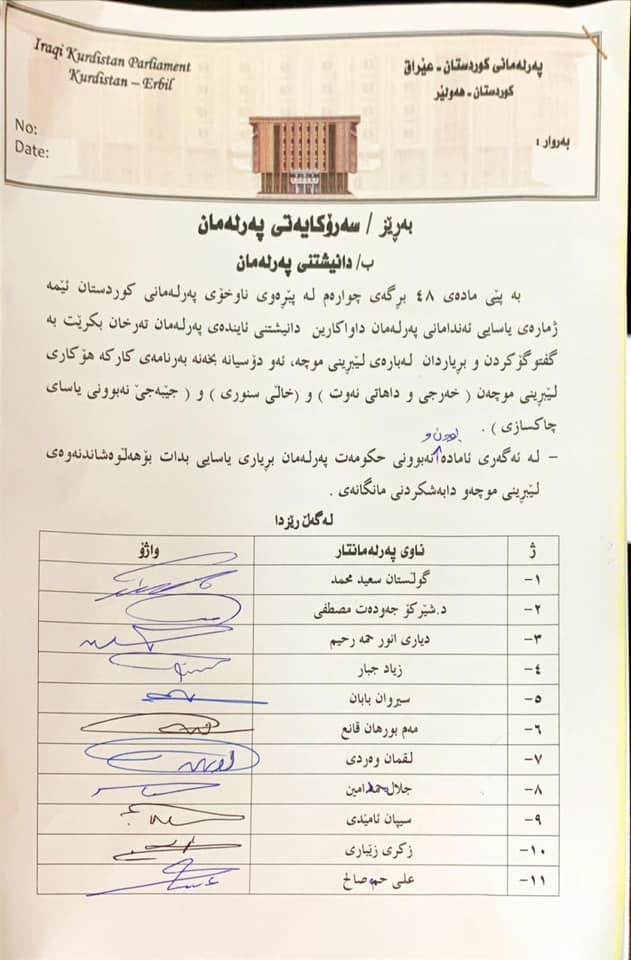 Iraqi Kurdistan Parliament
Kurdistan – Erbil
No:
Date:
پەرلەمانی کوردستان - عێراق
کوردستان - هەولێر
بەروار :
بەڕێز / سەرۆکایەتی پەرلەمان
ب/ دانیشتنی پەرلەمان
بە پێی مادەی ٤٨ بڕگەی چوارەم لە پێڕەوی ناوخۆی پەرلەمانی کوردستان ئێمە
ژمارەی یاسایی ئەندامانی پەرلەمان داواکارین دانیشتنی ئایندەی پەرلەمان تەرخان بکرێت بە
گفتوگۆکردن و بڕیاردان لەبارەی لێبڕینی موچە، ئەو دۆسیانە بخەنە بەرنامەی کارکە هۆکاری
لێبڕینی موچەن ( خەرجی و داهاتی نەوت ) و (خاڵی سنوری ) و ( جێبەجێ نەبوونی یاسای
چاکسازی ) .
بوون و
– لە ئەگەری ئامادە نەبوونی حکومەت پەرلەمان بڕیاری یاسایی بدات بۆهەڵوەشاندنەوەی
لێبڕینی موچەو دابەشکردنی مانگانەی .
لەگەڵ ڕێزدا
ژ ناوی پەرلەمانتار واژۆ
١- گوڵستان سعید محمد
٢- د.شێرکۆ جەودەت مصطفی
٣- دیاری انور حمە رحیم
٤- زیاد جبار
٥- سیروان بابان
٦- مەم بورهان قانع
٧- لقمان وەردی
٨- جلال حمدامین
٩- سیپان ئامێدی
١٠- زکری زێباری
١١- علی حمە صالح